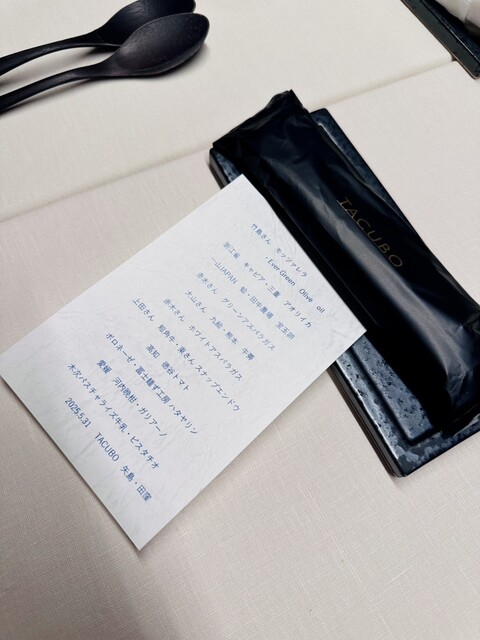 竹島さん モッツァレラ
・Ever Green Olive oil
浙江省 キャビア・三重 アオリイカ
一山JAPAN ・田中農場
赤水さん グリーンアスパラガス
大山さん 九絵・熊本 牛蒡
赤木さん ホワイトアスパラガス
上田さん 短角牛・梁さん スナップエンドウ
高知 徳谷トマト
ボロネーゼ・富士麺ず工房 ハタヤリン
愛媛 河内晩柑・ガリアーノ
木次パスチャライズ牛乳・ピスタチオ
2025.5.31 TACUBO 矢島・田窪
TACUBO